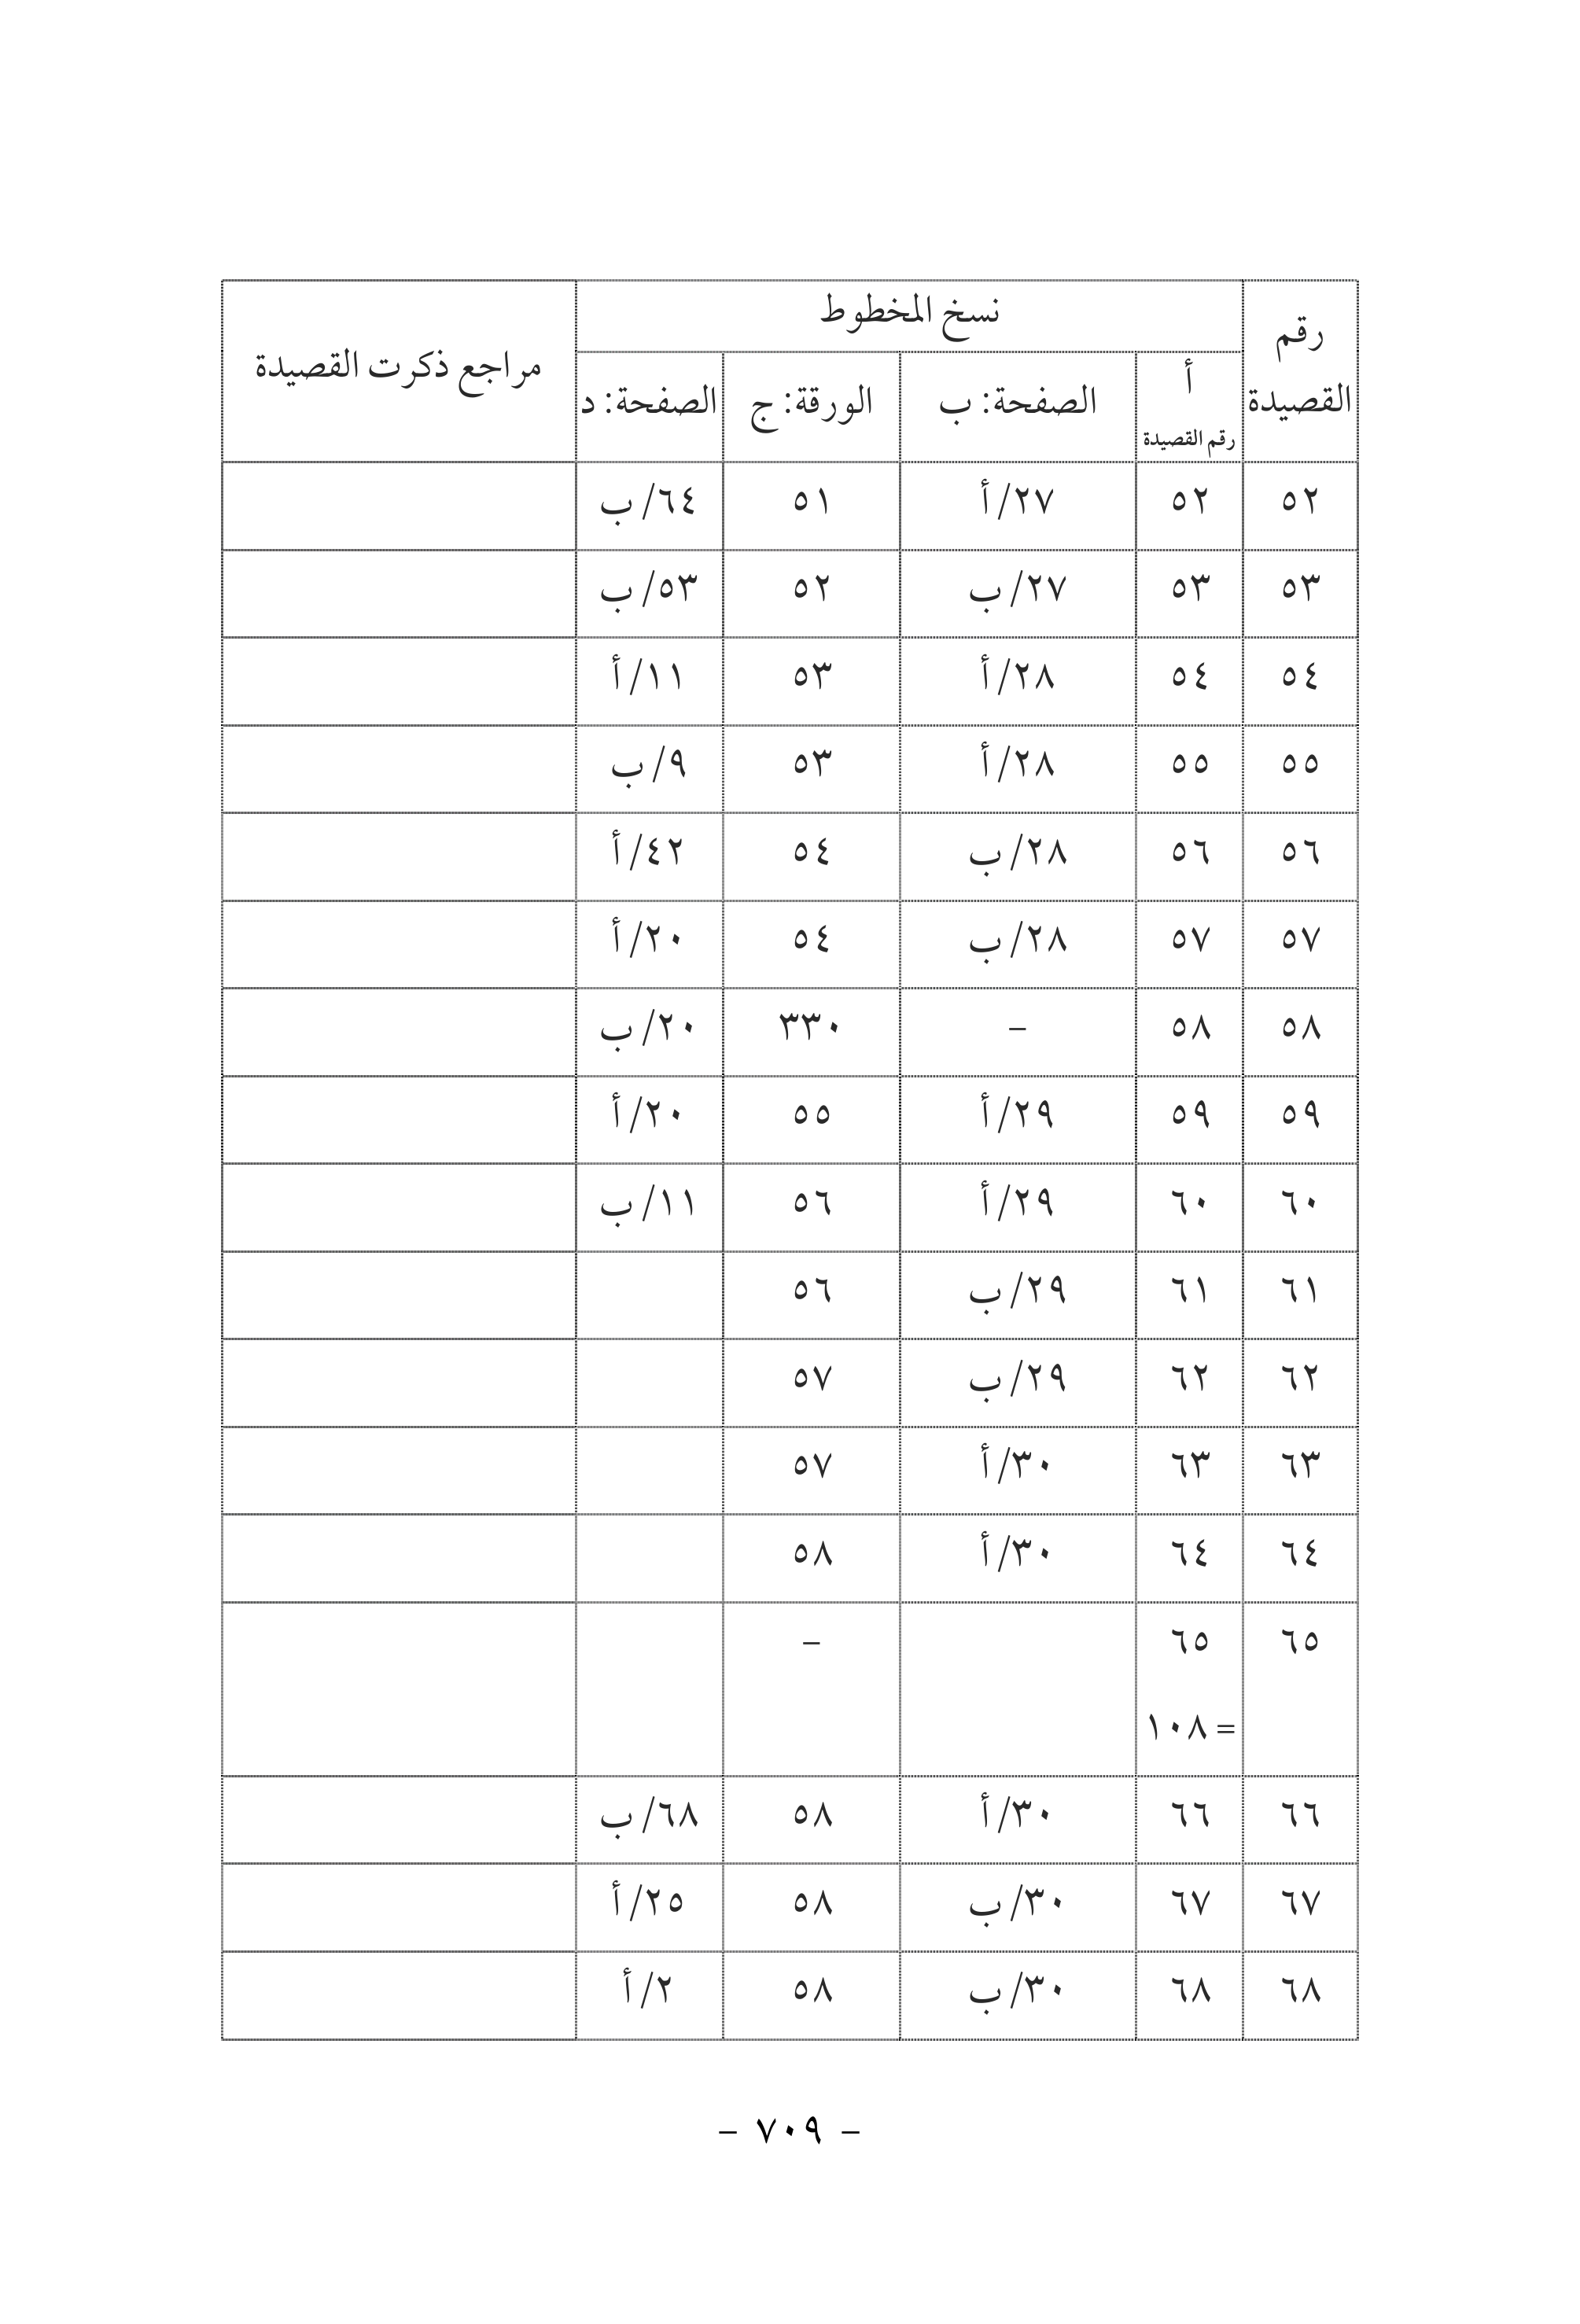 رقم القصيدة نسخ المخطوط مراجع ذكرت القصيدة
أ رقم القصيدة الصفحة: ب الورقة: ج الصفحة: د
٥٢ ٥٢ ٢٧/أ ٥١ ٦٤/ب
٥٣ ٥٣ ٢٧/ب ٥٢ ٥٣/ب
٥٤ ٥٤ ٢٨/أ ٥٣ ١١/أ
٥٥ ٥٥ ٢٨/أ ٥٣ ٩/ب
٥٦ ٥٦ ٢٨/ب ٥٤ ٤٢/أ
٥٧ ٥٧ ٢٨/ب ٥٤ ٢٠/أ
٥٨ ٥٨ – ٣٣٠ ٢٠/ب
٥٩ ٥٩ ٢٩/أ ٥٥ ٢٠/أ
٦٠ ٦٠ ٢٩/أ ٥٦ ١١/ب
٦١ ٦١ ٢٩/ب ٥٦
٦٢ ٦٢ ٢٩/ب ٥٧
٦٣ ٦٣ ٣٠/أ ٥٧
٦٤ ٦٤ ٣٠/أ ٥٨
٦٥ ٦٥ –
= ١٠٨
٦٦ ٦٦ ٣٠/أ ٥٨ ٦٨/ب
٦٧ ٦٧ ٣٠/ب ٥٨ ٢٥/أ
٦٨ ٦٨ ٣٠/ب ٥٨ ٢/أ
– ٧٠٩ –